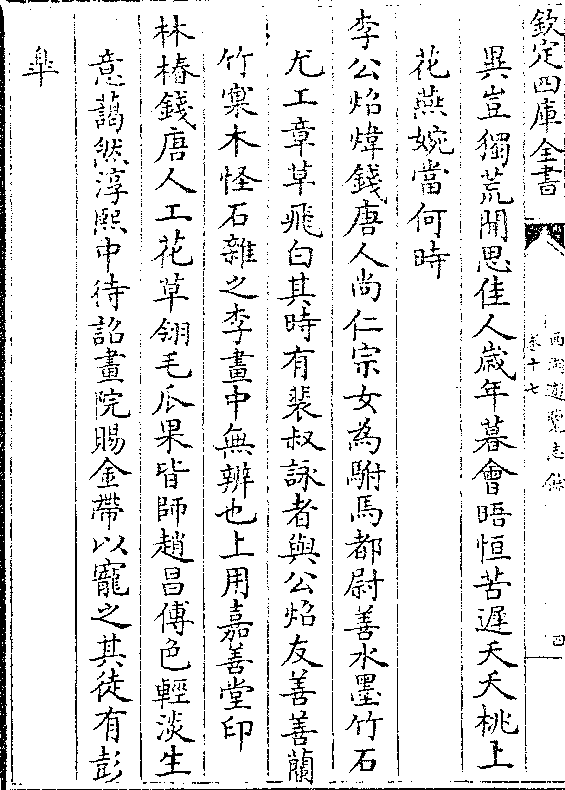 欽定四庫全書
西湖遊覽志餘
卷十七
四
異豈獨荒閒思佳人歲年暮會晤恒苦遲夭夭桃上
花燕婉當何時
李公炤煒錢唐人尚仁宗女為駙馬都尉善水墨竹石
尤工章草飛白其時有裴叔詠者與公炤友善善蘭
竹窠木怪石雜之李畫中無辨也上用嘉善堂印
林椿錢唐人工花草翎毛瓜果皆師趙昌傅色輕淡生
意藹然淳熙中待詔畫院賜金帶以寵之其徒有彭
臯